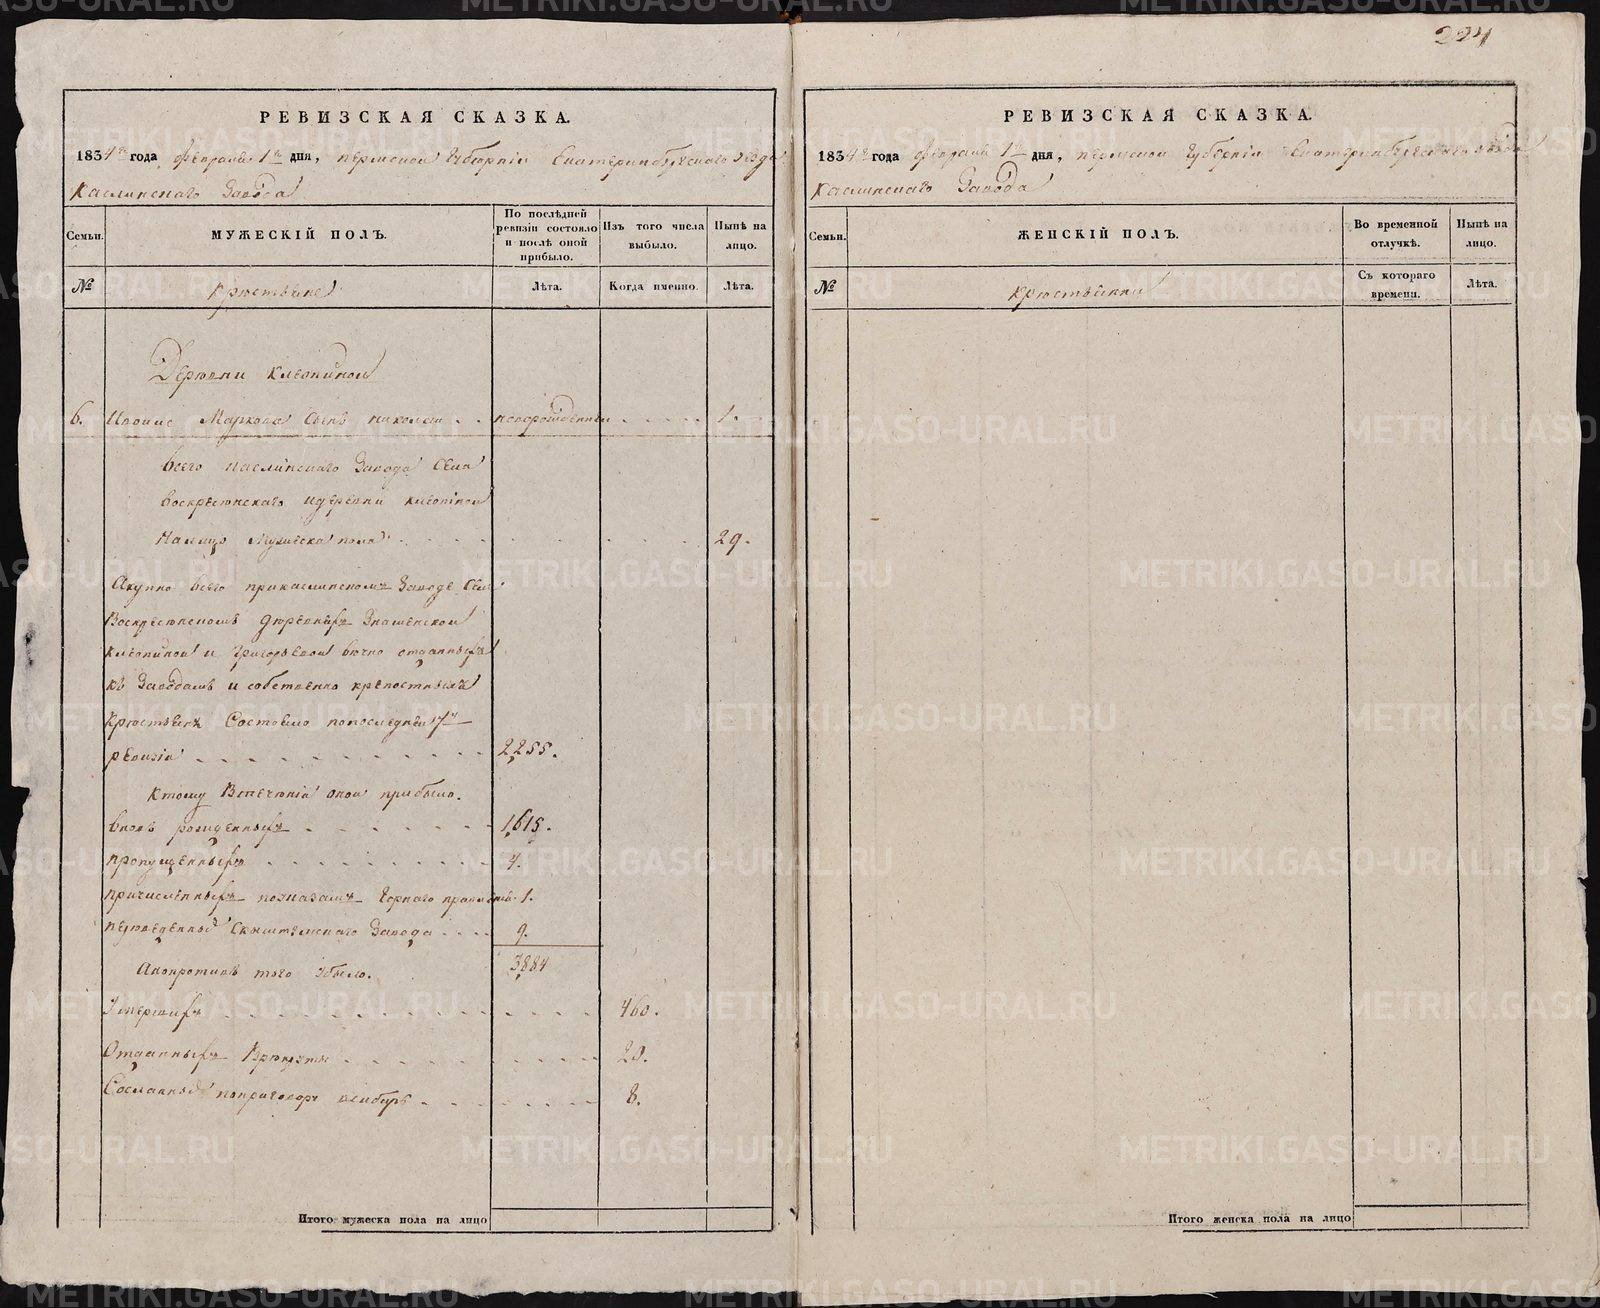 224
РЕВИЗСКАЯ СКАЗКА.
1834го года февраля 1го дня, пермской губернiи Екатеринбургскаго уезда
Каслинскаго Завода
Семьи.
МУЖЕСКIЙ ПОЛЪ.
По послѣдней ревизiи состояло и послѣ оной прибыло.
Изъ того числа выбыло.
Нынѣ на лицо.
№
Крестьяне
Лѣта.
Когда именно.
Лѣта.
Деревни Клеопиной
6. Маркова Сынъ николай новорожденный 1.
всего каслинскаго Завода Села
воскресенскаго идеревни клеопиной
Налицо Мужеска пола 29.
Авкупно всего прикаслинскомъ Заводе Селе
Воскресенскомъ деревняхъ Знаменской
клеопиной и григорьевой вечно отданныхъ
къ Заводамъ и собственно крепостныхъ
крестьянъ Состояло попоследней 7й
ревизiи 2255.
Ктому Втеченiи оной прибыло.
вновь рожденныхъ 1615.
пропущенныхъ 4.
причисленныхъ поуказамъ Горнаго правленiя 1.
переведенныхъ Скыштымскаго Завода 9.
3884
Анапротивъ того убыло.
Умершихъ 460.
Отданныхъ Врекруты 20.
Сосланныхъ поприговору всибирь 8.
Итого мужеска пола на лицо
РЕВИЗСКАЯ СКАЗКА.
1834го года февраля 1го дня, пермской губернiи Екатеринбургскаго уезда
Каслинскаго Завода
Семьи.
ЖЕНСКIЙ ПОЛЪ.
Во временной отлучкѣ.
Нынѣ на лицо.
№
Крестьянки
Съ котораго времени.
Лѣта.
Итого женска пола на лицо
METRIKI.GASO-URAL.RU